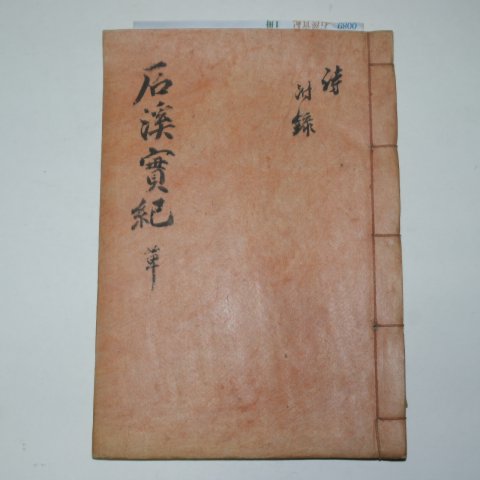 詩
附錄
石溪實紀 單